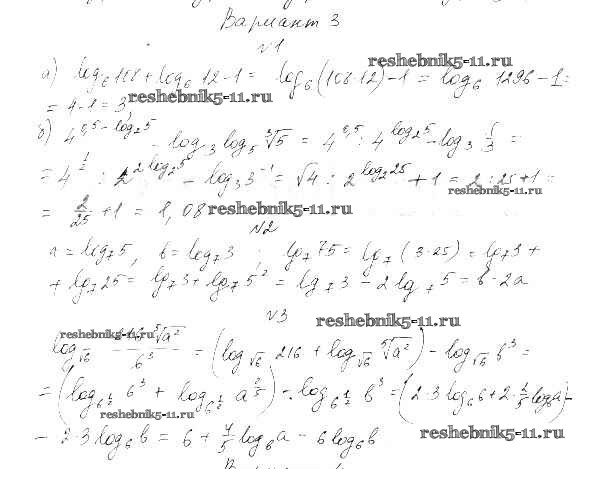 Вариант 3
№1
reshebnik5-11.ru
а) log₆108 + log₆12 - 1 = log₆(108·12) - 1 = log₆ 1296 - 1 =
= 4 - 1 = 3
reshebnik5-11.ru
б) 4^(0,5 - log₂5) - log₃ log₅ ∛5 = 4^(0,5) : 4^(log₂5) - log₃ 1/3 =
= 4^(1/2) : 2^(2 log₂5) - log₃3⁻¹ = √4 : 2^(log₂25) + 1 = 2 : 25 + 1 =
reshebnik5-11.ru
= 2/25 + 1 = 1,08
reshebnik5-11.ru
№2
a = log₇5, b = log₇3 ; lg₇ 75 = lg₇ (3·25) = lg₇3 +
+ lg₇25 = lg₇3 + lg₇5² = lg₇3 - 2lg₇5 = b - 2a
№3
reshebnik5-11.ru
reshebnik5-11.ru
log_√6 ⁵√a² / b³ = (log_√6 216 + log_√6 ⁵√a²) - log_√6 b³ =
= (log_6^(1/2) 6³ + log_6^(1/2) a^(2/5)) - log_6^(1/2) b³ = (2·3 log₆6 + 2·2/5 log₆a) -
reshebnik5-11.ru
- 2·3 log₆b = 6 + 4/5 log₆a - 6 log₆b
reshebnik5-11.ru